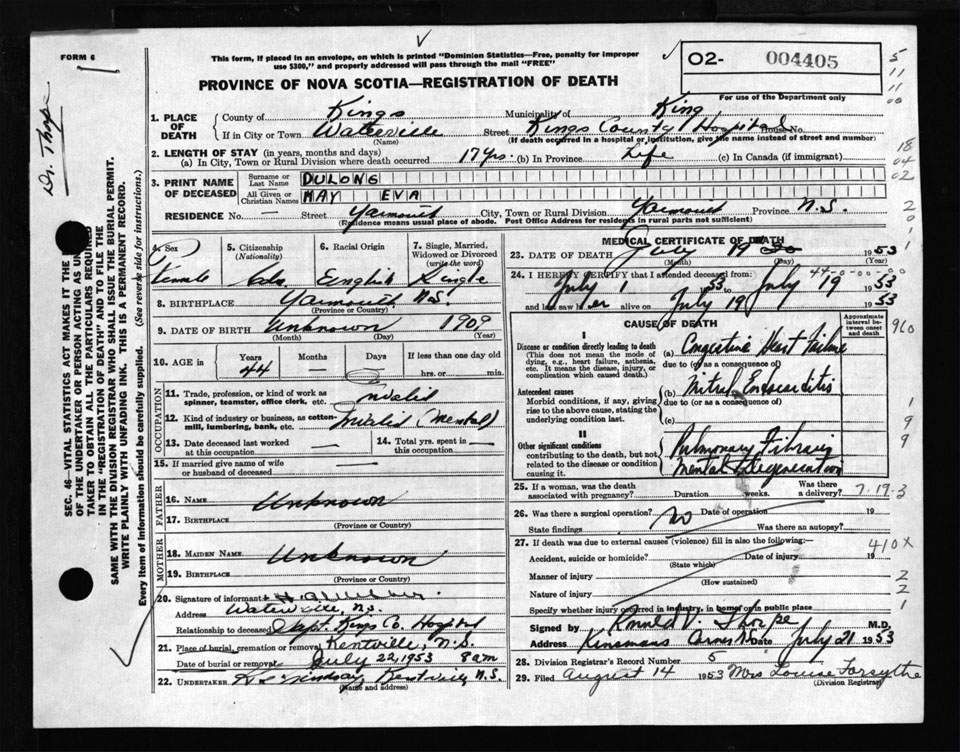 FORM 6
This form, if placed in an envelope, on which is printed "Dominion Statistics—Free, penalty for improper
use $300," and properly addressed will pass through the mail "FREE"
PROVINCE OF NOVA SCOTIA—REGISTRATION OF DEATH
02- 004405
For use of the Department only
Dr. Thorpe
SEC. 46—VITAL STATISTICS ACT MAKES IT THE
OF THE UNDERTAKER OR PERSON ACTING AS UN
TAKER TO OBTAIN ALL THE PARTICULARS REQUIRED
IN THE "REGISTRATION OF DEATH" AND TO FILE THE
SAME WITH THE DIVISION REGISTRAR WHO SHALL ISSUE THE BURIAL PERMIT.
WRITE PLAINLY WITH UNFADING INK. THIS IS A PERMANENT RECORD.
Every item of information should be carefully supplied. (See reverse side for instructions.)
1. PLACE OF DEATH
County of Kings Municipality of King
If in City or Town Waterville Street Kings County Hospital House No.
(Name) (If death occurred in a hospital or institution, give the name instead of street and number)
2. LENGTH OF STAY (in years, months and days)
(a) In City, Town or Rural Division where death occurred 17 Yrs. (b) In Province Life (c) In Canada (if immigrant)
3. PRINT NAME OF DECEASED
Surname or Last Name DULONG
All Given or Christian Names MAY EVA
RESIDENCE No. — Street Yarmouth City, Town or Rural Division Yarmouth Province N.S.
(Residence means usual place of abode. Post Office Address for residents in rural parts not sufficient)
4. Sex Female
5. Citizenship (Nationality)
6. Racial Origin English
7. Single, Married, Widowed or Divorced (write the word) Single
8. BIRTHPLACE Yarmouth N.S.
(Province or Country)
9. DATE OF BIRTH Unknown 1909
(Month) (Day) (Year)
10. AGE in Years 44 Months — Days — If less than one day old hrs. or min.
OCCUPATION
11. Trade, profession, or kind of work as spinner, teamster, office clerk, etc. Invalid
12. Kind of industry or business, as cotton-mill, lumbering, bank, etc. Invalid (Mental)
13. Date deceased last worked at this occupation —
14. Total yrs. spent in this occupation —
15. If married give name of wife or husband of deceased —
FATHER
16. NAME Unknown
17. BIRTHPLACE
(Province or Country)
MOTHER
18. MAIDEN NAME Unknown
19. BIRTHPLACE
(Province or Country)
20. Signature of informant
Address Waterville, N.S.
Relationship to deceased Supt. Kings Co. Hospital
21. Place of burial, cremation or removal Kentville, N.S.
Date of burial or removal July 22, 1953 8 am
22. UNDERTAKER Lindsay Kentville N.S.
(Name and address)
MEDICAL CERTIFICATE OF DEATH
23. DATE OF DEATH July 19 1953
(Month) (Day) (Year)
24. I HEREBY CERTIFY that I attended deceased from:
July 1 1953 to July 19 1953
and last saw her alive on July 19 1953
44-0-00-00
CAUSE OF DEATH
Approximate interval between onset and death
Disease or condition directly leading to death (a) Congestive Heart Failure
(This does not mean the mode of dying, e.g., heart failure, asthenia, etc. It means the disease, injury, or complication which caused death.)
due to (or as a consequence of)
Antecedent causes (b) Mitral Endocarditis
Morbid conditions, if any, giving rise to the above cause, stating the underlying condition last.
due to (or as a consequence of)
(c)
II
Other significant conditions Pulmonary Fibrosis
contributing to the death, but not related to the disease or condition causing it. Mental Degeneration
25. If a woman, was the death associated with pregnancy? Duration weeks. Was there a delivery? 7-19-3
26. Was there a surgical operation? No Date of operation 19
State findings Was there an autopsy?
27. If death was due to external causes (violence) fill in also the following:— 410X
Accident, suicide or homicide? Date of injury 19
(State which)
Manner of injury
(How sustained)
Nature of injury
Specify whether injury occurred in industry, in home or in public place
Signed by Ronald V. Thorpe M.D.
Address Kinsmans Corner NS Date July 21 1953
28. Division Registrar's Record Number 5
29. Filed August 14 1953 Mrs Louise Forsythe
(Division Registrar)
5
11
11
00
18
04
02
2
0
1
1
960
1
9
9
2
2
1